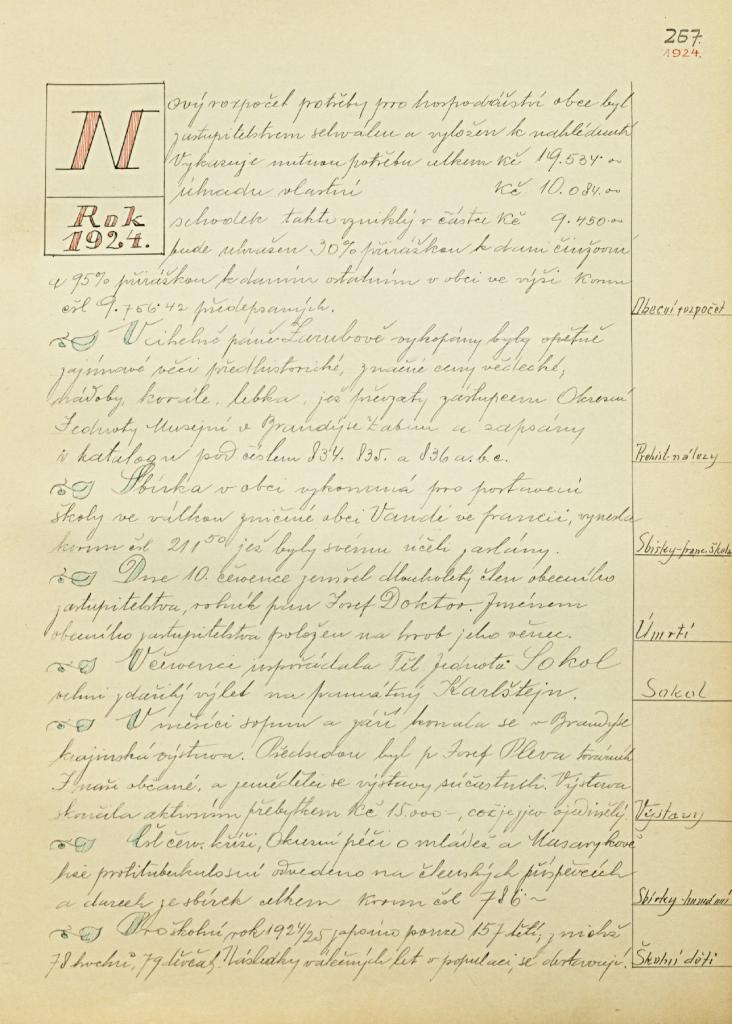 267.
1924.
Nový rozpočet potřeby pro hospodářství obce byl
zastupitelstvem schválen a vyložen k nahlédnutí
Vykazuje nutnou potřebu celkem Kč 19.534·-
úhradu vlastní Kč 10.084.-
Rok
1924.
schodek takto vzniklý v částce Kč 9.450·-
bude uhrazen 30% přirážkou k dani činžovní
a 95% přirážkou k daním ostatním v obci ve výši korun
čsl 9.756·42 předepsaných.
Obecní rozpočet
V cihelně páně Zarubově vykopány byly opětně
zajímavé věci předhistorické, značné ceny vědecké;
nádoby, korále, lebka, jež převzaty zástupcem Okresní
Jednoty Musejní v Brandýse n Labem a zapsány
v katalogu pod číslem 834. 835. a 836 a.b.c.
Prehist. nálezy
Sbírka v obci vykonaná pro postavení
školy ve válkou zničené obci Vandé ve francii, vynesla
korun čsl 211⁵⁰ jež byly svému účeli zaslány.
Sbírky-franc. škola
Dne 10. července zemřel dlouholetý člen obecního
zastupitelstva, rolník pan Josef Doktor. Jménem
obecního zastupitelstva položen na hrob jeho věnec.
Úmrtí
V červenci uspořádala Těl. Jednota Sokol
velmi zdařilý výlet na památný Karlštejn.
Sokol
V měsíci srpnu a září konala se v Brandýse
krajinská výstava. Předsedou byl p. Josef Pleva továrník
I naši občané, a zemědělci se výstavy súčastnili. Výstava
skončila aktivním přebytkem Kč 15.000-, což je zjev ojedinělý.
Výstavy
Čsl červ. kříži, Okresní péči o mládež a Masarykově
lize protituberkulosní odvedeno na členských příspěvcích
a darech ze sbírek celkem korun čsl 786·-
Sbírky-humanní
Pro školní rok 1924/25 zapsáno pouze 157 dětí; z nichž
78 hochů, 79 děvčat. Následky válečných let v populaci, se dostavují.
Školní děti